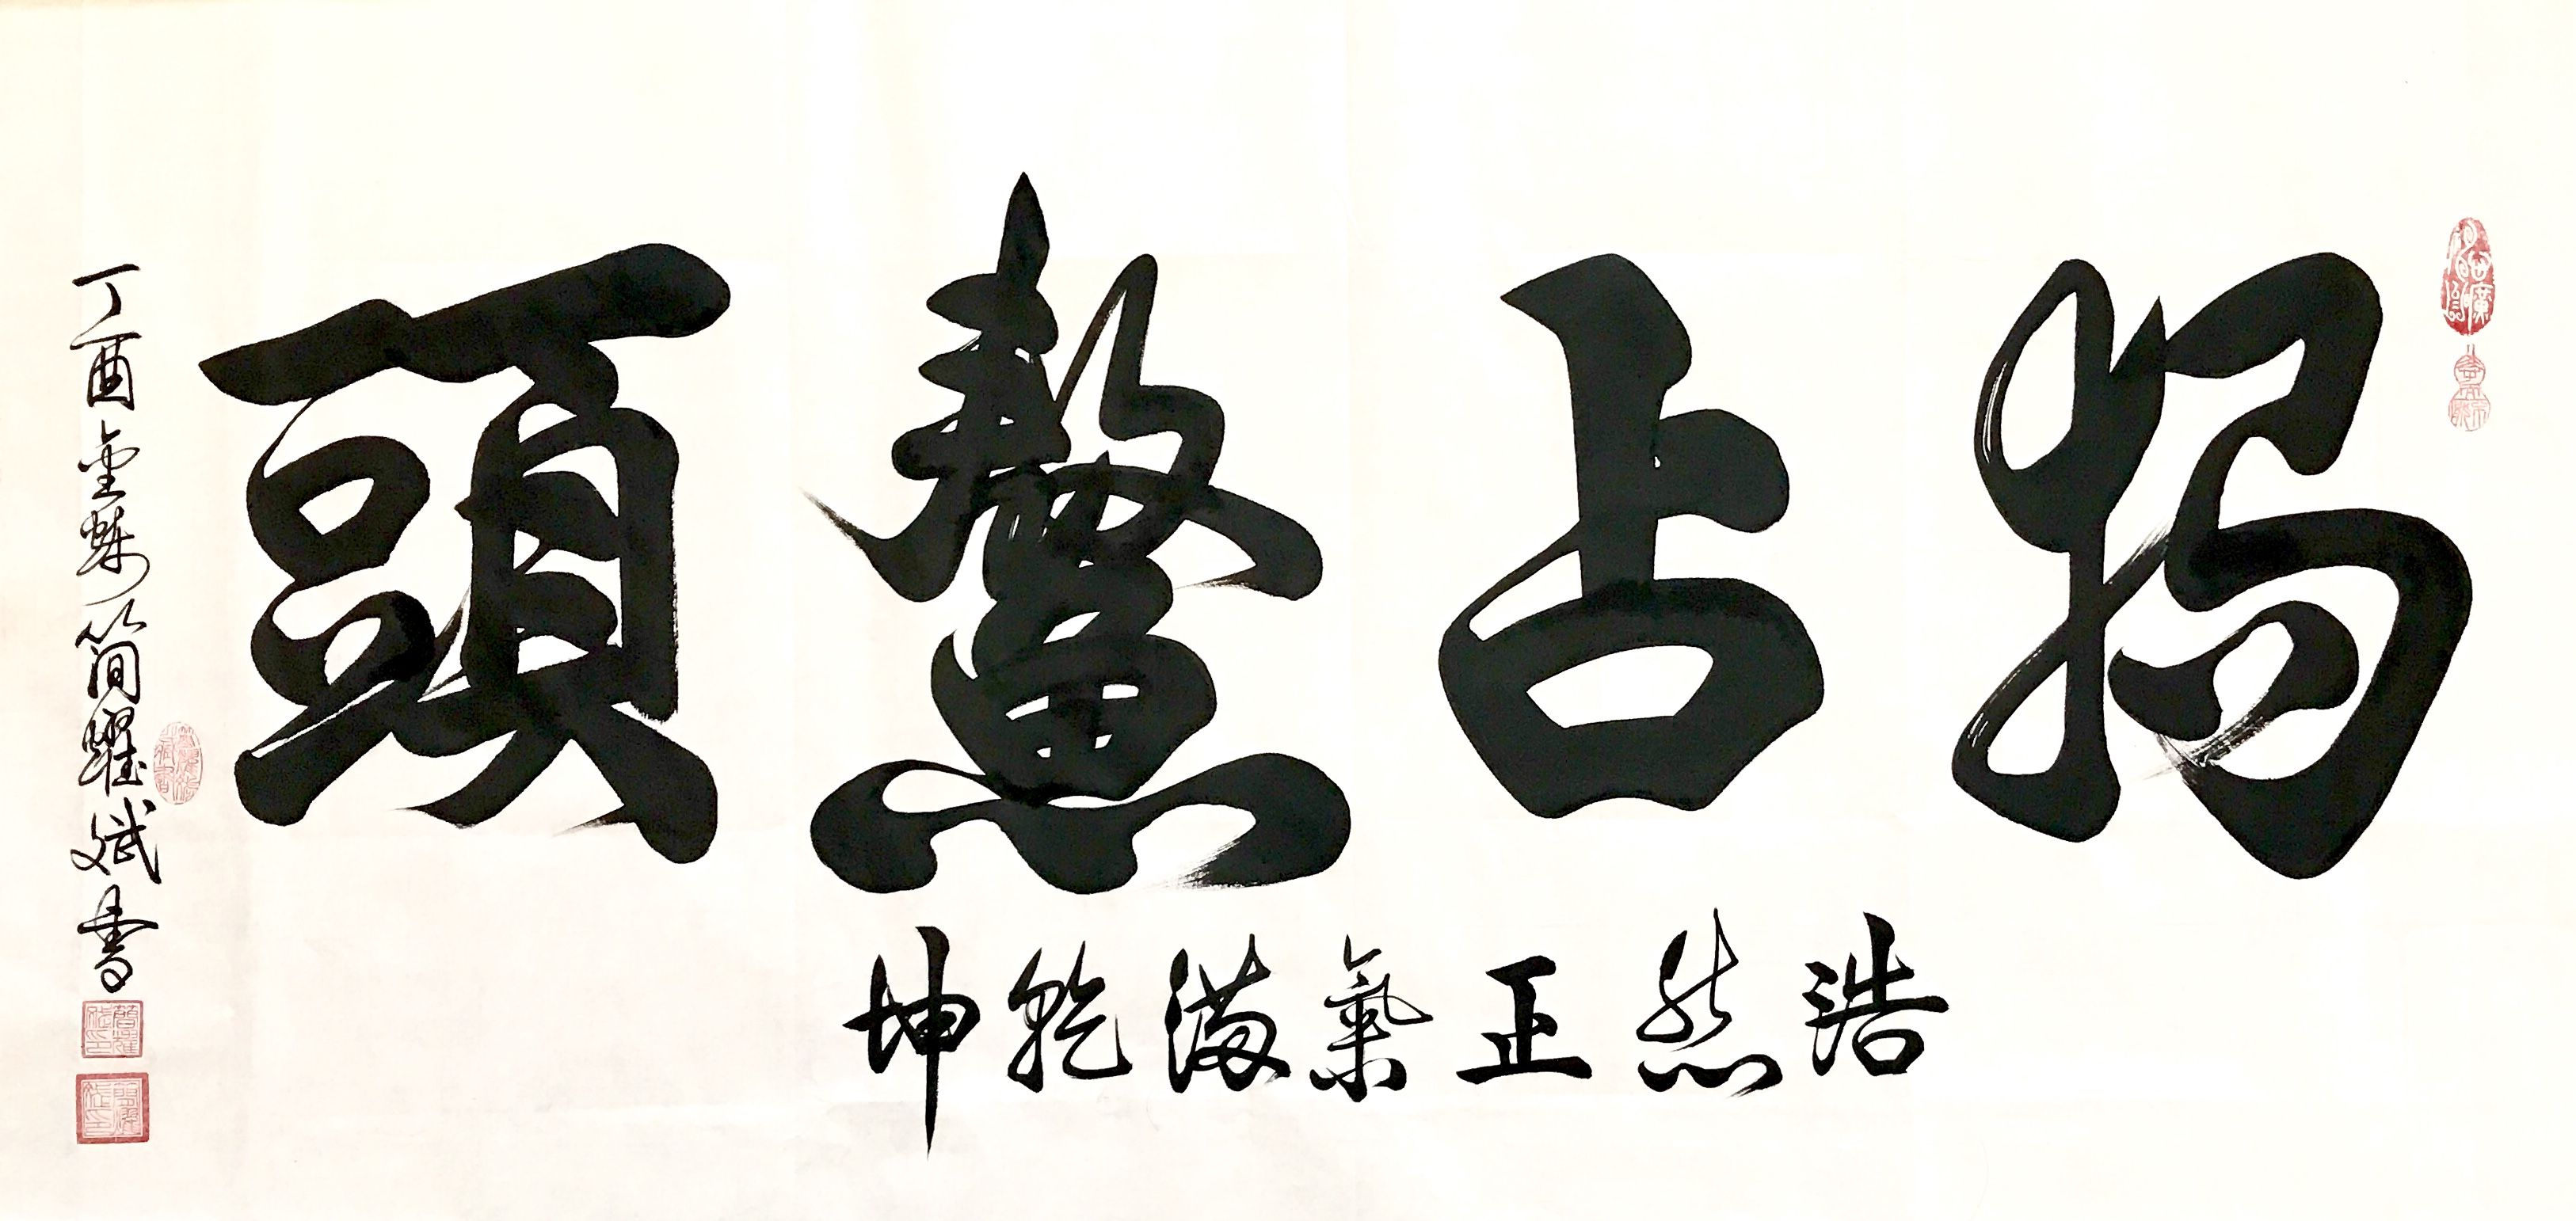 獨占鰲頭
浩然正氣滿乾坤
丁酉金秋簡耀斌書